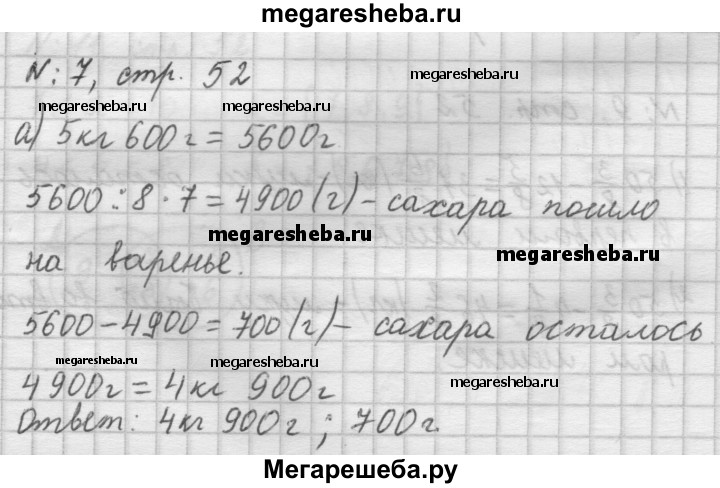 megaresheba.ru
N: 7, стр. 52
megaresheba.ru
megaresheba.ru megaresheba.ru
а) 5кг 600г = 5600г
5600 : 8 · 7 = 4900 (г) - сахара пошло
megaresheba.ru
на варенье.
megaresheba.ru
5600 - 4900 = 700 (г) - сахара осталось.
megaresheba.ru megaresheba.ru
4900г = 4кг 900г
megaresheba.ru
Ответ: 4кг 900г ; 700г.
Мегарешеба.ру